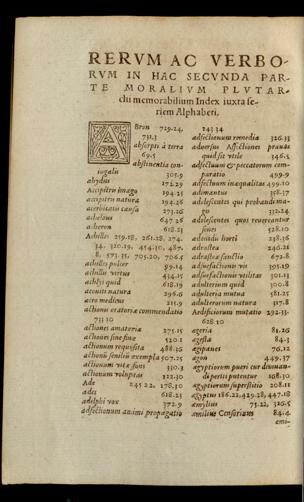 RERVM AC VERBO-
RVM IN HAC SECVNDA PAR-
TE MORALIVM PLVTAR-
chi memorabilium Index iuxta se-
riem Alphabeti.
ABron 729.24,
731.3
absorpti à terra
69.5
abstinentia con-
iugalis 305.9
abydus 172.29
Accipitris imago 194.25
accipitris natura 194.26
acerbitatis causa 273.26
achelous 647.26
acheron 618.25
Achilles 259.18, 261.28, 274.
34, 320.19, 454.30, 487.
8, 573.35, 705.20, 706.5
achilles pulcer 99.14
achillis virtus 434.15
achlys quid 618.19
aconiti natura 296.6
acro medicus 215.9
actionis oratoriæ commendatio
733.10
actiones amatoriæ 275.15
actiones sine fine 520.2
actionum requisita 488.36
actionū senilıū exempla 507.25
actionum vitæ fons 330.3
actionum voluptas 122.30
Ade 245.22, 178.30
ades 618.25
adelphi vox 372.9
adfectionum animi propagatio
243.34
adfectionum remedia 326.33
aduersus Affectiones prauas
quid sit vtile 346.5
adfectuum & peccatorum com-
paratio 499.9
adfectuum inæqualitas 499.10
adimantus 358.37
adolescentes qui probandi ma-
gis 332.24
adolescentes quos reuereantur
senes 528.10
adonidis horti 238.36
adrastea 246.21
adrasteæ sanctio 672.8
adsuefactionis vis 395.19
adsuefactionis vtilitas 301.13
adulterium quid 300.8
adulteria mutua 581.25
adulterorum natura 317.8
Aedificiorum mutatio 292.33.
628.10
ageria 81.26
agesta 84.3
ægipanes 76.12
ægon 449.37
ægyptiorum pueri cur diuinan-
di periti putentur 208.30
ægyptiorum superstitio 208.11
ægyptus 186.22, 429.28, 447.18
æmylius 75.22, 326.5
æmilius Censorinus 84.4
æmi-